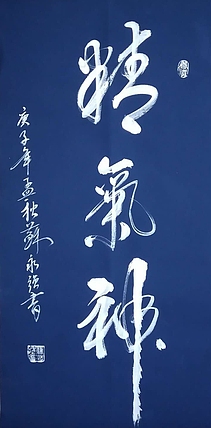 精氣神
庚子年孟秋蘇永强書